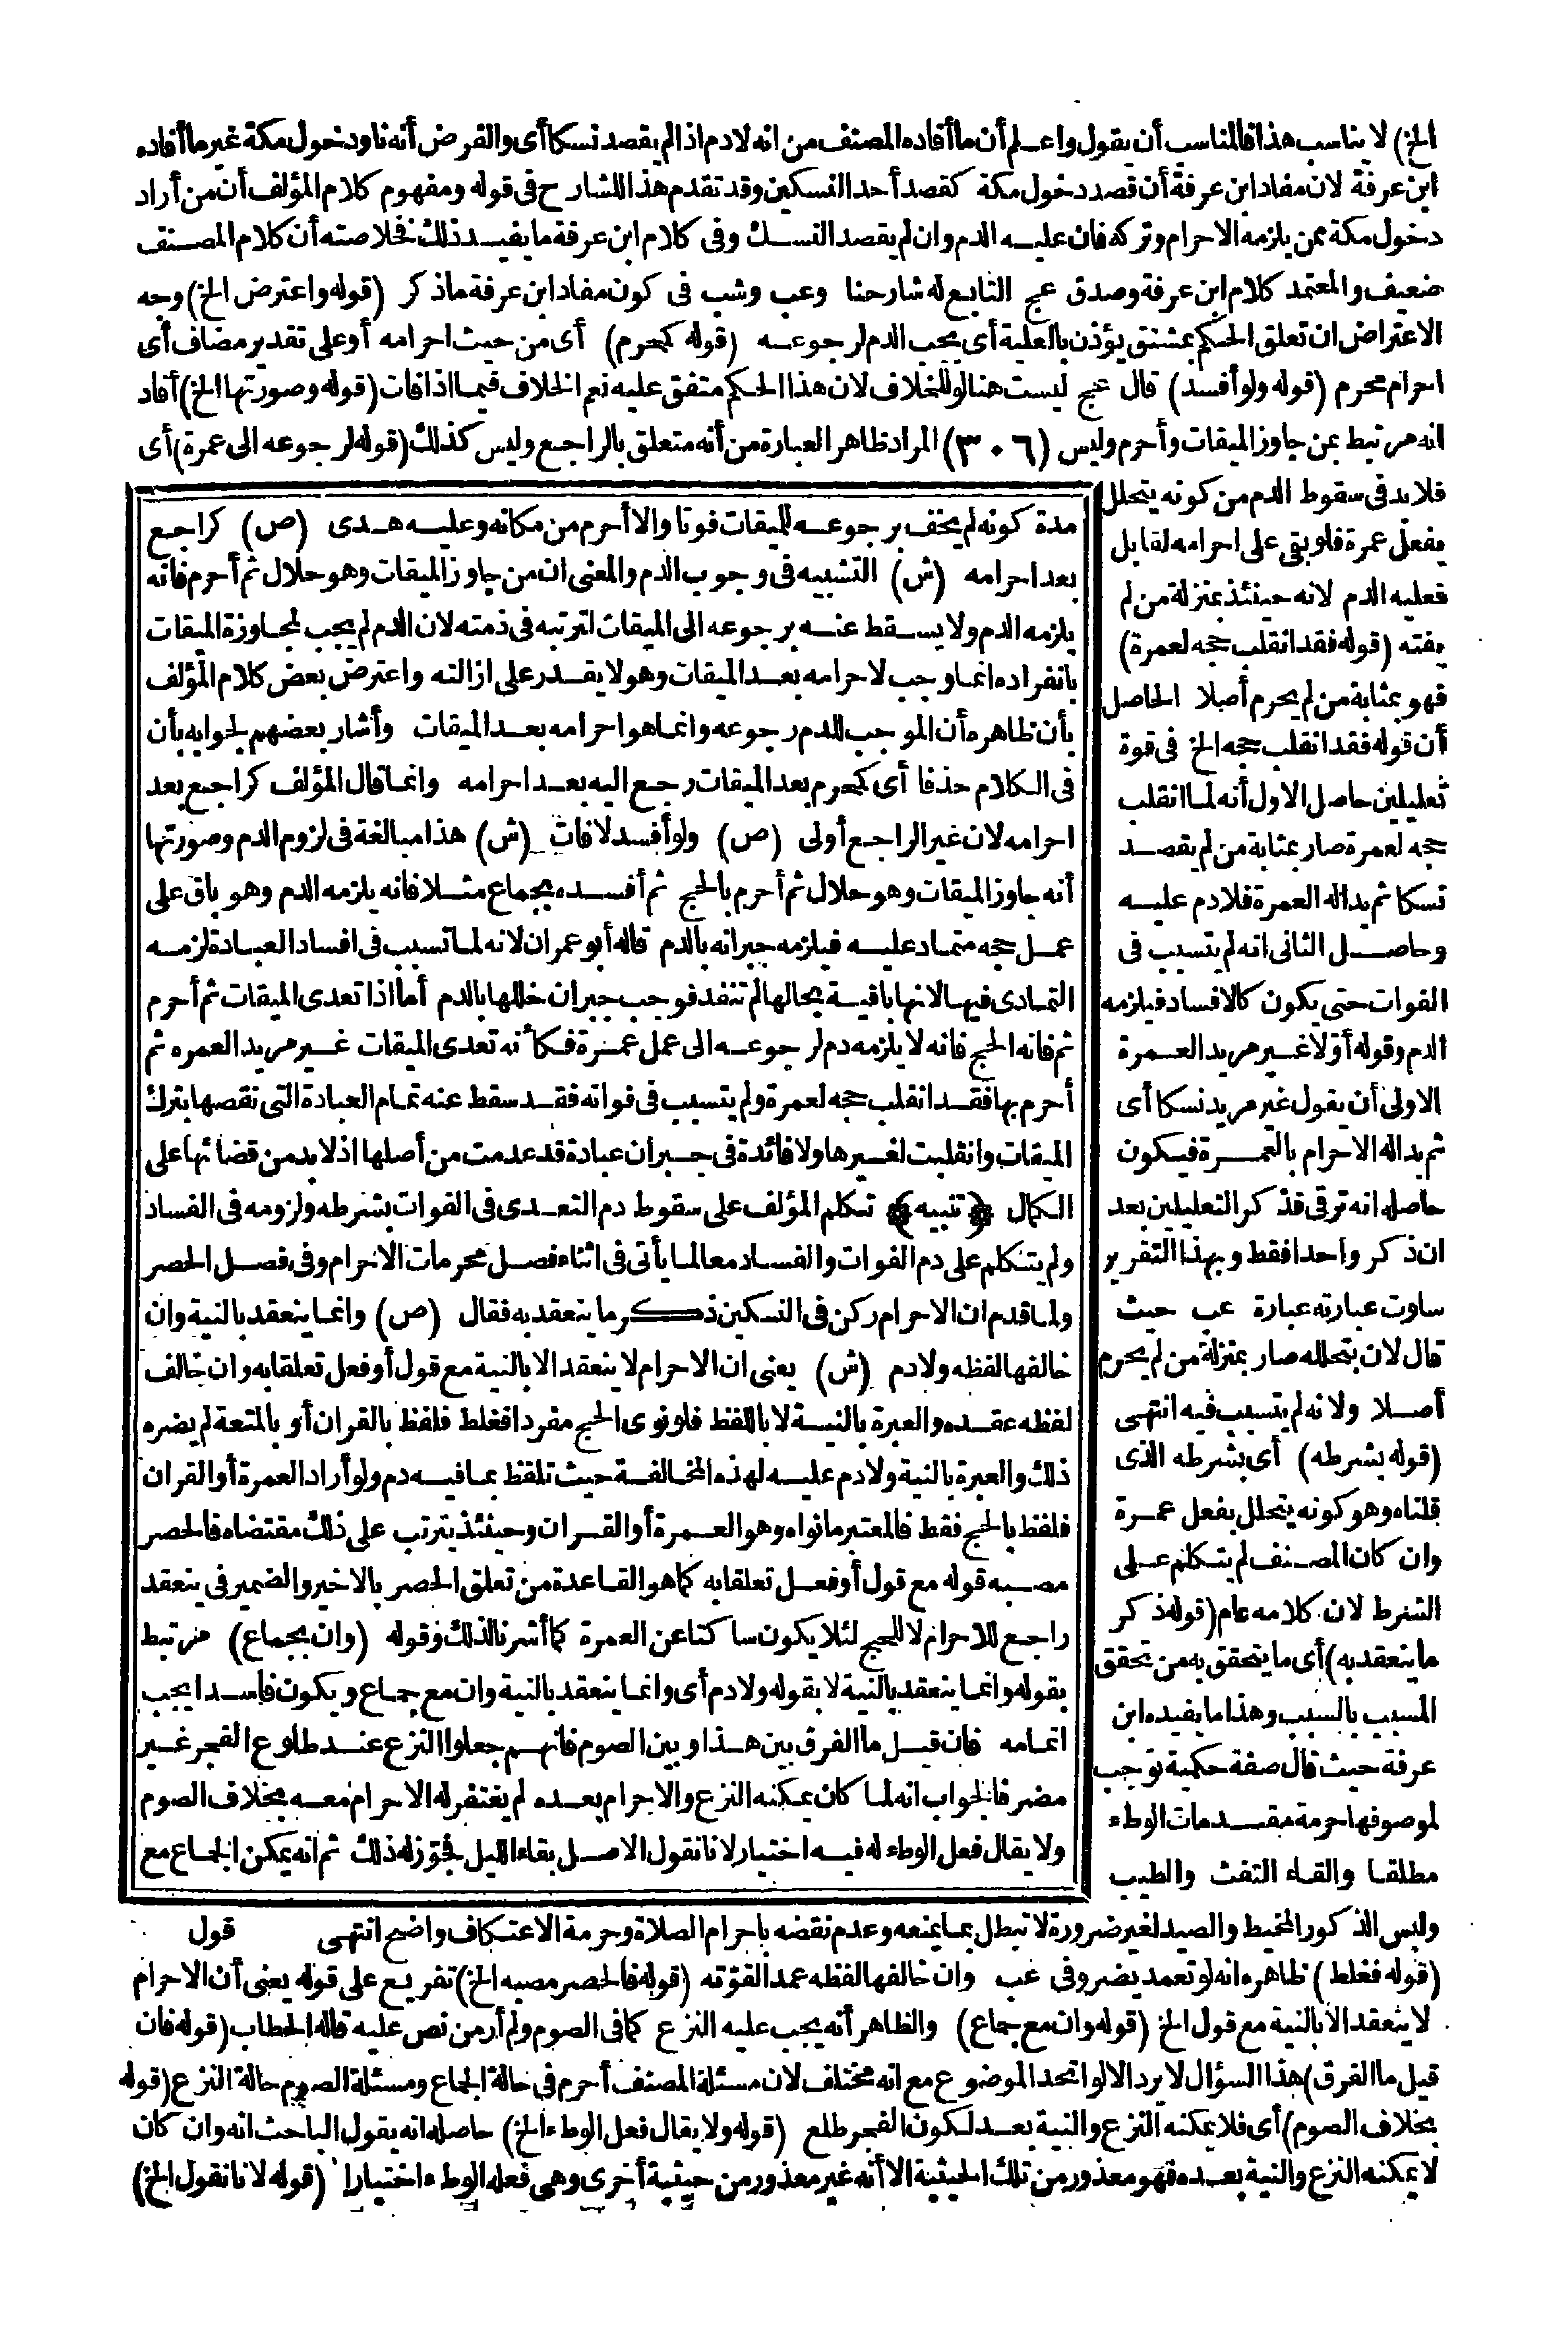 الخ) لا يناسب هذا فالمناسب أن يقول واعلم أن ما أفاده المصنف من انه لادم اذا لم يقصد نسكا أى والفرض أنه ناو دخول مكة غير ما أفاده
ابن عرفة لان مفاد ابن عرفة أن قصد دخول مكة كقصد أحد النسكين وقد تقدم هذا للشارح فى قوله ومفهوم كلام المؤلف أن من أراد
دخول مكة ممن يلزمه الاحرام وتركه فان عليه الدم وان لم يقصد النسك وفى كلام ابن عرفة ما يفيد ذلك فخلاصته أن كلام المصنف
ضعيف والمعتمد كلام ابن عرفة وصدق عج التابع له شارحنا وعب وشب فى كون مفاد ابن عرفة ماذكر (قوله واعترض الخ) وجه
الاعتراض ان تعلق الحكم بمشتق يؤذن بالعلية أى يجب الدم لرجوعه (قوله كمحرم) أى من حيث احرامه أو على تقدير مضاف أى
احرام محرم (قوله ولو أفسد) قال عج ليست هنا لو للخلاف لان هذا الحكم متفق عليه نعم الخلاف فيما اذا فات (قوله وصورتها الخ) أفاد
انه مرتبط بمن جاوز الميقات وأحرم وليس (٣٠٦) المراد ظاهر العبارة من أنه متعلق بالراجع وليس كذلك (قوله لرجوعه الى عمرة) أى
فلابد فى سقوط الدم من كونه يتحلل
بفعل عمرة فلو بقى على احرامه لقابل
فعليه الدم لانه حينئذ بمنزلة من لم
يفته (قوله فقد انقلب حجه لعمرة)
فهو بمثابة من لم يحرم أصلا الحاصل
أن قوله فقد انقلب حجه الخ فى قوة
تعليلين حاصل الاول أنه لما انقلب
حجه لعمرة صار بمثابة من لم يقصد
نسكا ثم بداله العمرة فلادم عليه
وحاصل الثانى انه لم يتسبب فى
الفوات حتى يكون كالافساد فيلزمه
الدم وقوله أولا غير مريد العمرة
الاولى أن يقول غير مريد نسكا أى
ثم بداله الاحرام بالعمرة فيكون
حاصله انه ترقى فذكر التعليلين بعد
ان ذكر واحدا فقط وبهذا التقرير
ساوت عبارته عبارة عب حيث
قال لان بتحلله صار بمنزلة من لم يحرم
أصلا ولانه لم يتسبب فيه انتهى
(قوله بشرطه) أى بشرطه الذى
قلناه وهو كونه يتحلل بفعل عمرة
وان كان المصنف لم يتكلم على
الشرط لان كلامه عام (قوله ذكر
ما ينعقد به) أى ما يتحقق به من تحقق
المسبب بالسبب وهذا ما يفيده ابن
عرفة حيث قال صفة حكمية توجب
لموصوفها حرمة مقدمات الوطء
مطلقا والقاء التفث والطيب
مدة كونه لم يخف برجوعه للميقات فوتا والا أحرم من مكانه وعليه هدى (ص) كراجع
بعد احرامه (ش) التشبيه فى وجوب الدم والمعنى ان من جاوز الميقات وهو حلال ثم أحرم فانه
يلزمه الدم ولا يسقط عنه برجوعه الى الميقات لترتبه فى ذمته لان الدم لم يجب لمجاوزة الميقات
بانفراده انما وجب لاحرامه بعد الميقات وهو لا يقدر على ازالته واعترض بعض كلام المؤلف
بأن ظاهره أن الموجب للدم رجوعه وانما هو احرامه بعد الميقات وأشار بعضهم لجوابه بأن
فى الكلام حذفا أى كمحرم بعد الميقات رجع اليه بعد احرامه وانما قال المؤلف كراجع بعد
احرامه لان غير الراجع أولى (ص) ولو أفسد لا فات (ش) هذا مبالغة فى لزوم الدم وصورتها
أنه جاوز الميقات وهو حلال ثم أحرم بالحج ثم أفسده بجماع مثلا فانه يلزمه الدم وهو باق على
عمل حجه متماد عليه فيلزمه جبرانه بالدم قاله أبو عمران لانه لما تسبب فى افساد العبادة لزمه
التمادى فيها لانها باقية بحالها لم تنفد فوجب جبران خللها بالدم أما اذا تعدى الميقات ثم أحرم
ثم فاته الحج فانه لا يلزمه دم لرجوعه الى عمل عمرة فكأنه تعدى الميقات غير مريد العمره ثم
أحرم بها فقد انقلب حجه لعمرة ولم يتسبب فى فواته فقد سقط عنه تمام العبادة التى نقصها بترك
الميقات وانقلبت لغيرها ولا فائدة فى جبران عبادة قد عدمت من أصلها اذ لابد من قضائها على
الكمال ﴿تنبيه﴾ تكلم المؤلف على سقوط دم التعدى فى الفوات بشرطه ولزومه فى الفساد
ولم يتكلم على دم الفوات والفساد معا لما يأتى فى اثناء فصل محرمات الاحرام وفى فصل الحصر
ولما قدم ان الاحرام ركن فى النسكين ذكر ما ينعقد به فقال (ص) وانما ينعقد بالنية وان
خالفها لفظه ولادم (ش) يعنى ان الاحرام لا ينعقد الا بالنية مع قول أو فعل تعلقا به وان خالف
لفظه عقده والعبرة بالنية لا باللفظ فلو نوى الحج مفردا فغلط فلفظ بالقران أو بالمتعة لم يضره
ذلك والعبرة بالنية ولادم عليه لهذه المخالفة حيث تلفظ بما فيه دم ولو أراد العمرة أو القران
فلفظ بالحج فقط فالمعتبر ما نواه وهو العمرة أو القران وحينئذ يترتب على ذلك مقتضاه فالحصر
مصبه قوله مع قول أو فعل تعلقا به كما هو القاعدة من تعلق الحصر بالاخير والضمير فى ينعقد
راجع للاحرام لا للحج لئلا يكون ساكتا عن العمرة كما أشرنا لذلك وقوله (وان بجماع) مرتبط
بقوله وانما ينعقد بالنية لا بقوله ولادم أى وانما ينعقد بالنية وان مع جماع ويكون فاسدا يجب
اتمامه فان قيل ما الفرق بين هذا وبين الصوم فانهم جعلوا النزع عند طلوع الفجر غير
مضر فالجواب انه لما كان يمكنه النزع والاحرام بعده لم يغتفر له الاحرام معه بخلاف الصوم
ولا يقال فعل الوطء له فيه اختيار لانا نقول الاصل بقاء الليل فجوّز له ذلك ثم انه يمكن الجماع مع
ولبس الذكور المخيط والصيد لغير ضرورة لا تبطل بما يمنعه وعدم نقضه باحرام الصلاة وحرمة الاعتكاف واضح انتهى قول
(قوله فغلط) ظاهره انه لو تعمد يضر وفى عب وان خالفها لفظه عمدا لقوّته (قوله فالحصر مصبه الخ) تفريع على قوله يعنى أن الاحرام
لا ينعقد الا بالنية مع قول الخ (قوله وان مع جماع) والظاهر أنه يجب عليه النزع كما فى الصوم ولم أر من نص عليه قاله الحطاب (قوله فان
قيل ما الفرق) هذا السؤال لا يرد الا لو اتحد الموضوع مع انه مختلف لان مسئلة المصنف أحرم فى حالة الجماع ومسئلة الصوم حالة النزع (قوله
بخلاف الصوم) أى فلا يمكنه النزع والنية بعد لكون الفجر طلع (قوله ولا يقال فعل الوطء الخ) حاصله انه يقول الباحث انه وان كان
لا يمكنه النزع والنية بعده فهو معذور من تلك الحيثية الا أنه غير معذور من حيثية أخرى وهى فعله الوطء اختيارا (قوله لانا نقول الخ)